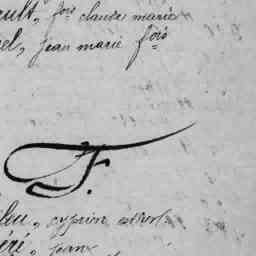 ault, fois claude marie
el, jean marie fois
F.
leu, cyprien
éré, jean